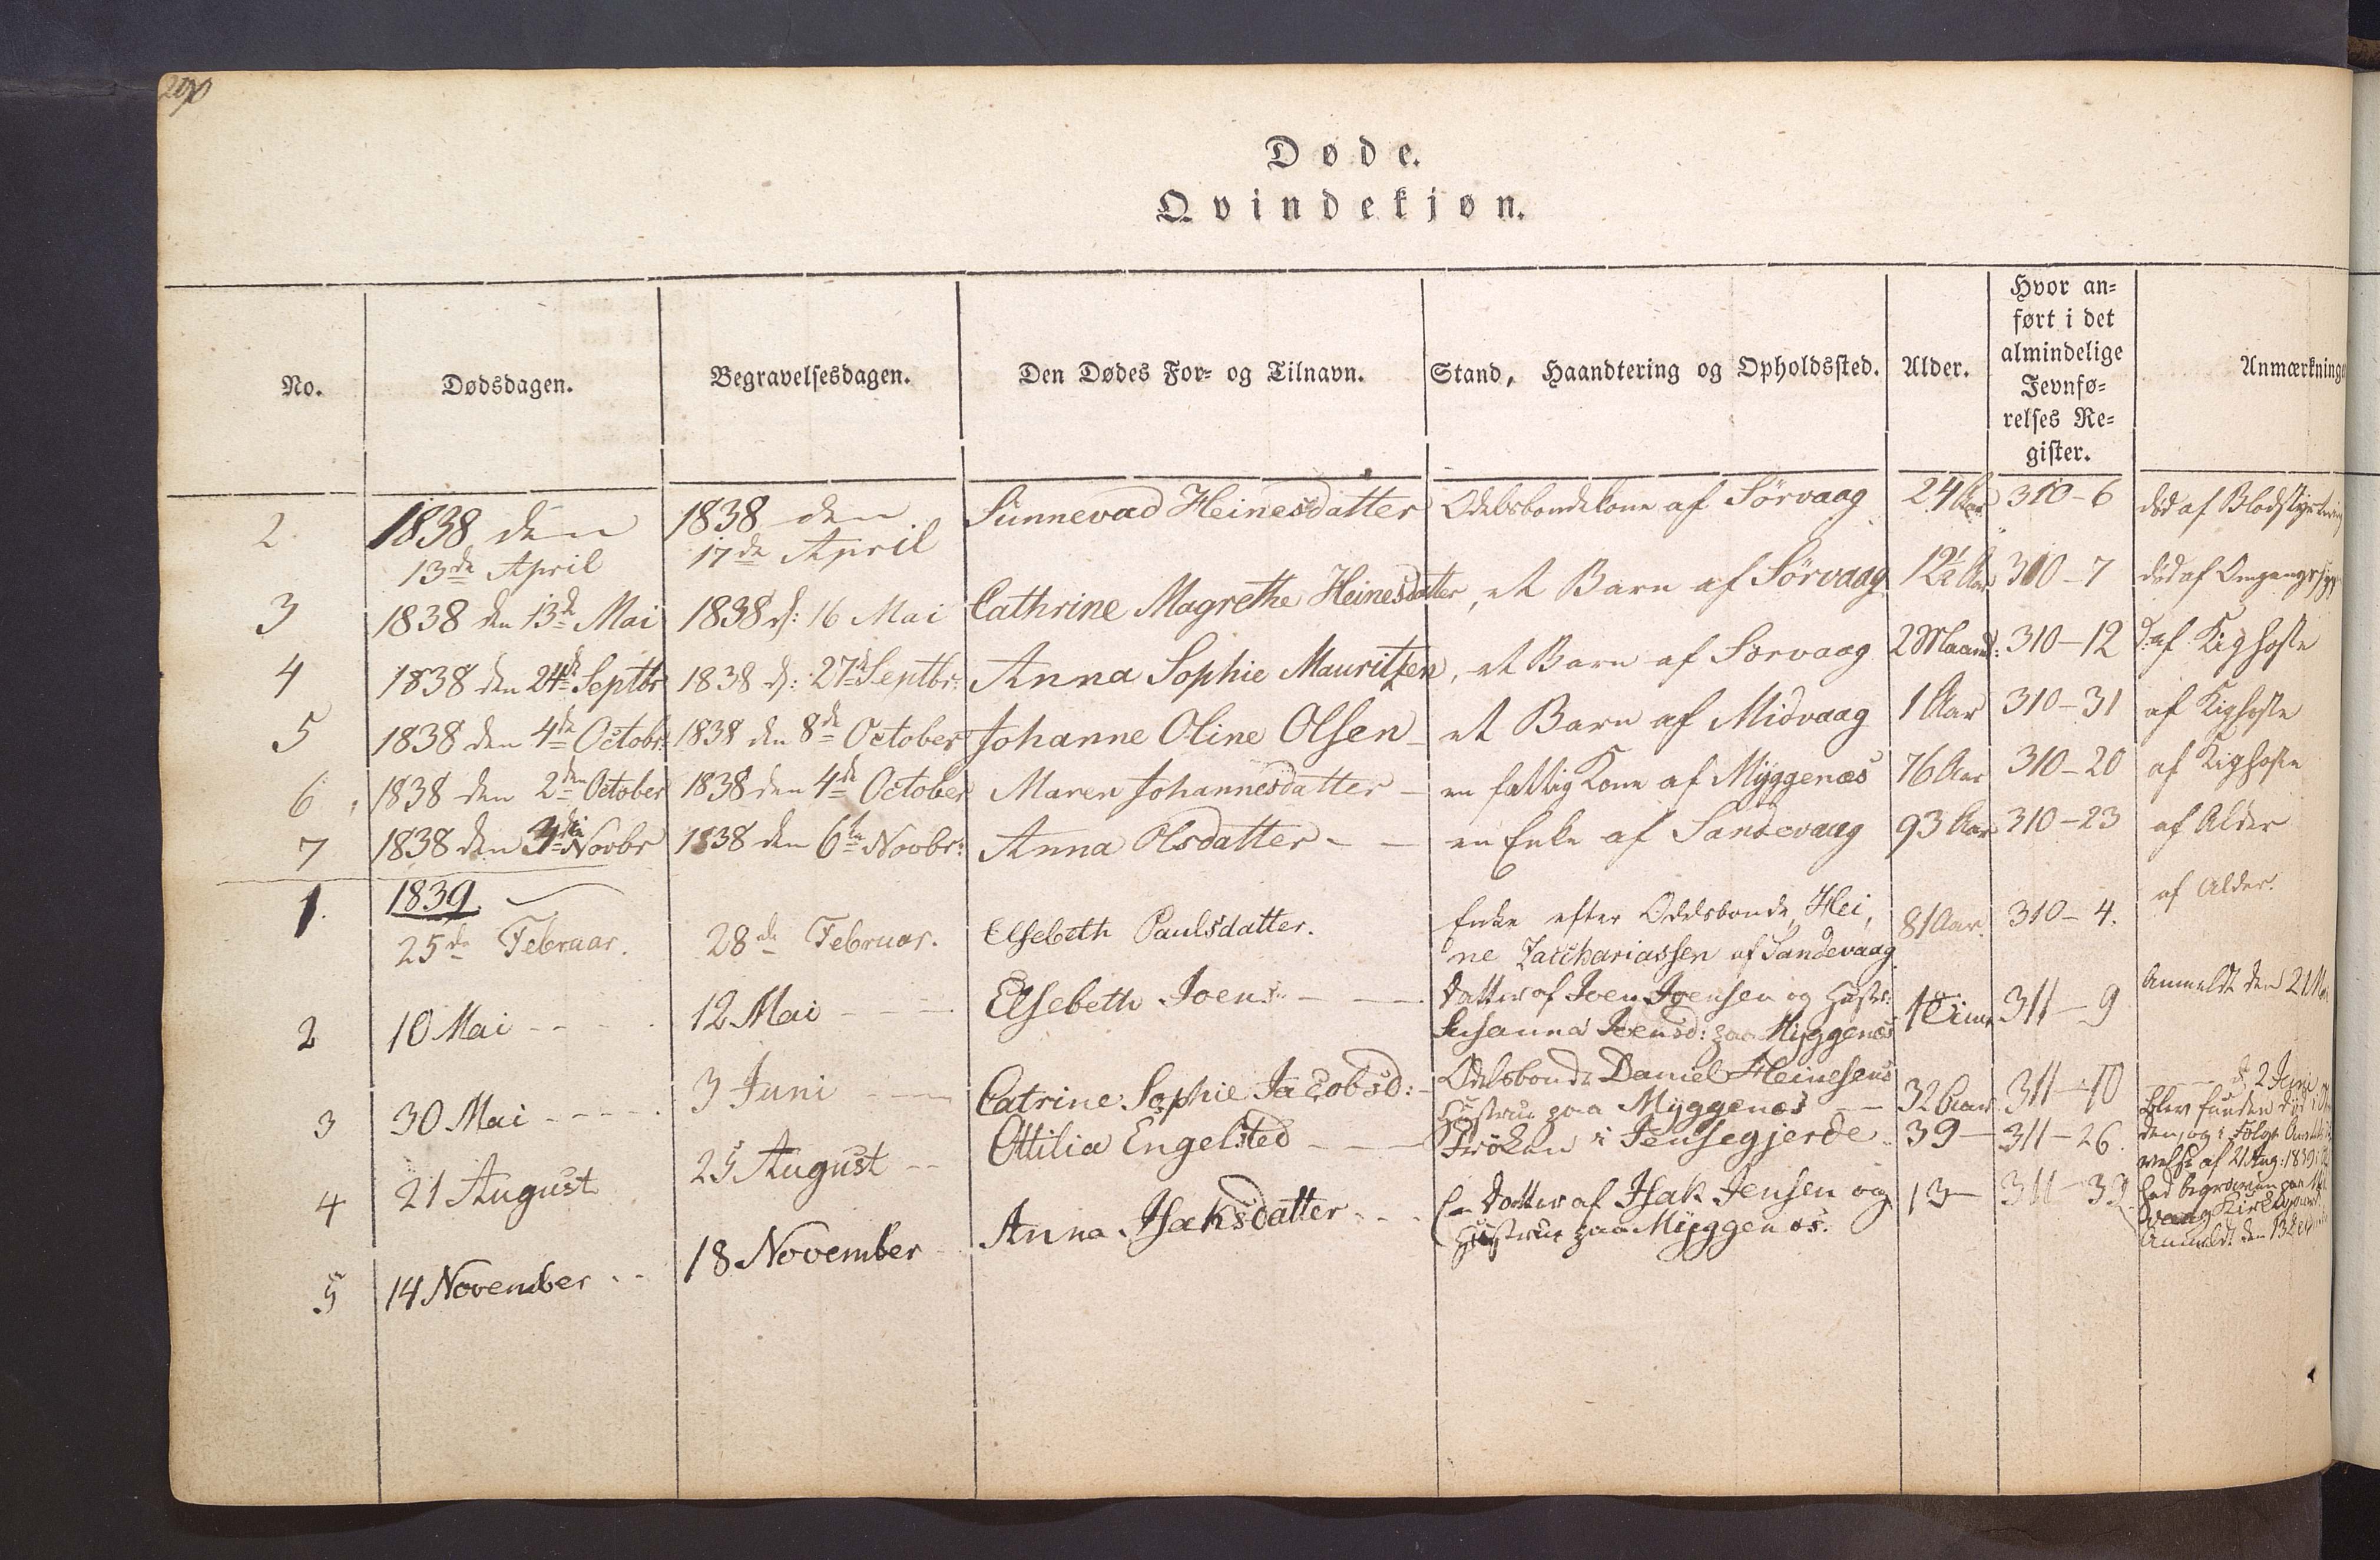 290
Døde.
Qvindekjøn.
No.
Dødsdagen.
Begravelsesdagen.
Den Dødes For- og Tilnavn.
Stand, Haandtering og Opholdssted.
Alder.
Hvor an-
ført i det
almindelige
Jevnfø-
relses Re-
gister.
Anmærkninge
2. 1838 den 1838 den Sunnevad Heinesdatter Odelsbondekone af Sörvaag 24 Aar 310-6 död af
13de April 17de April
3 1838 den 13de Mai 1838 d: 16 Mai Cathrine Magrethe Heinesdatter, et Barn af Sörvaag 1½ Aar 310-7 död af
4 1838 den 24de Septbr 1838 d: 27de Septbr: Anna Sophie Mauritzen, et Barn af Sorvaag 2 Maaned: 310-12 d. af Kighoste
5 1838 den 4de Octobr: 1838 den 8de October Johanne Oline Olsen - et Barn af Midvaag 1 Aar 310-31 af Kighoste
6 1838 den 2den October 1838 den 4de October Maren Johannesdatter - en fattig Kone af Myggenæs 76 Aar 310-20 af Kighoste
7 1838 den 3die Novbr 1838 den 6te Novbr: Anna Olsdatter - - en Enke af Sandevaag 93 Aar 310-23 af Alder
1. 1839.
25de Februar. 28de Februar. Elsebeth Paulsdatter. Enke efter Odelsbonde Hei, 81 Aar. 310-4. af Alder.
ne Zacchariassen af Sandevaag.
2 10 Mai - - - 12 Mai - - - Elsebeth Joens - - Datter af Joen Joensen og Hustr: 1 Time 311-9 Anmeldt den 21
Susanna Joensd: paa Myggenæs
3 30 Mai - - - 3 Juni - - Catrine Sophie Jacobsd: - Odelsbonde Daniel Heinesens 32 Aar 311-10 d. 2 Juni
Hustrue paa Myggenæs -
4 21 August 25 August - - Ottilia Engelsted - - - Fröken i Jensegjerde 39 - 311-26. Blev funden död i
den, og i Fölge
af 21 Aug: 1839
begraven paa
vaag Kirkegaard.
5 14 November - - 18 November Anna Isaksdatter - - - En Datter af Isak Jensen og 13 - 311-39 Anmeldt den 13
Hustrue paa Myggenæs.